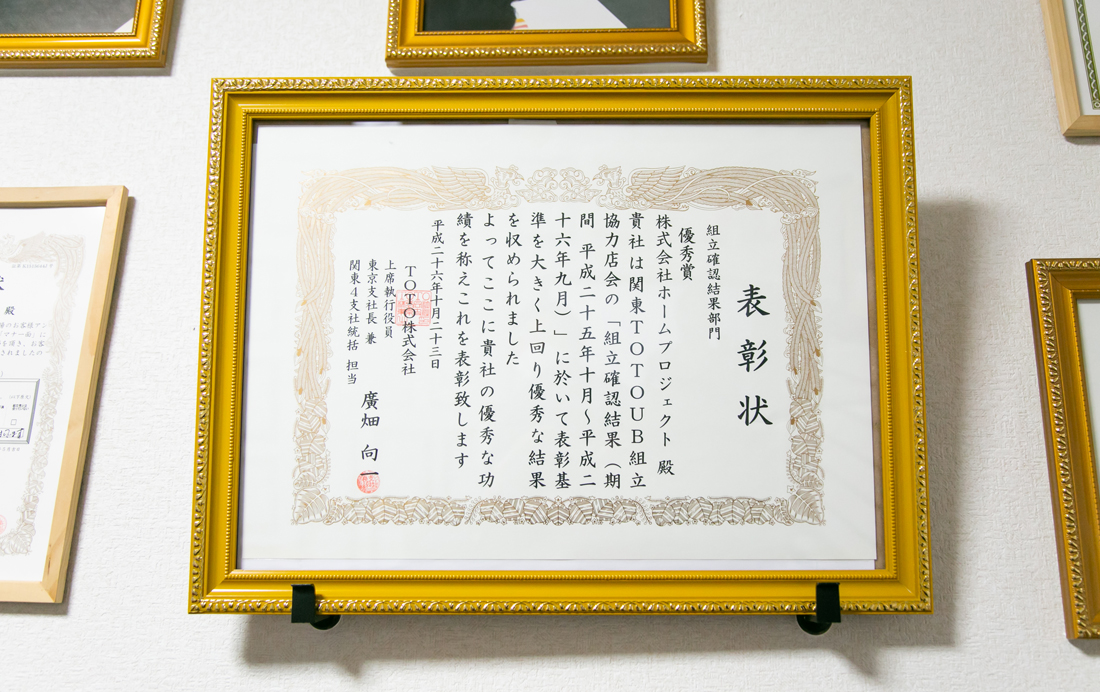 表彰状
組立確認結果部門
優秀賞
株式会社ホームプロジェクト 殿
貴社は関東TOTOUB組立
協力店会の「組立確認結果(期
間 平成二十五年十月〜平成二
十六年九月)」に於いて表彰基
準を大きく上回り優秀な結果
を収められました
よってここに貴社の優秀な功
績を称えこれを表彰致します
平成二十六年十月二十三日
TOTO株式会社
上席執行役員
東京支社長 兼
関東4支社統括 担当
廣畑 向一
殿